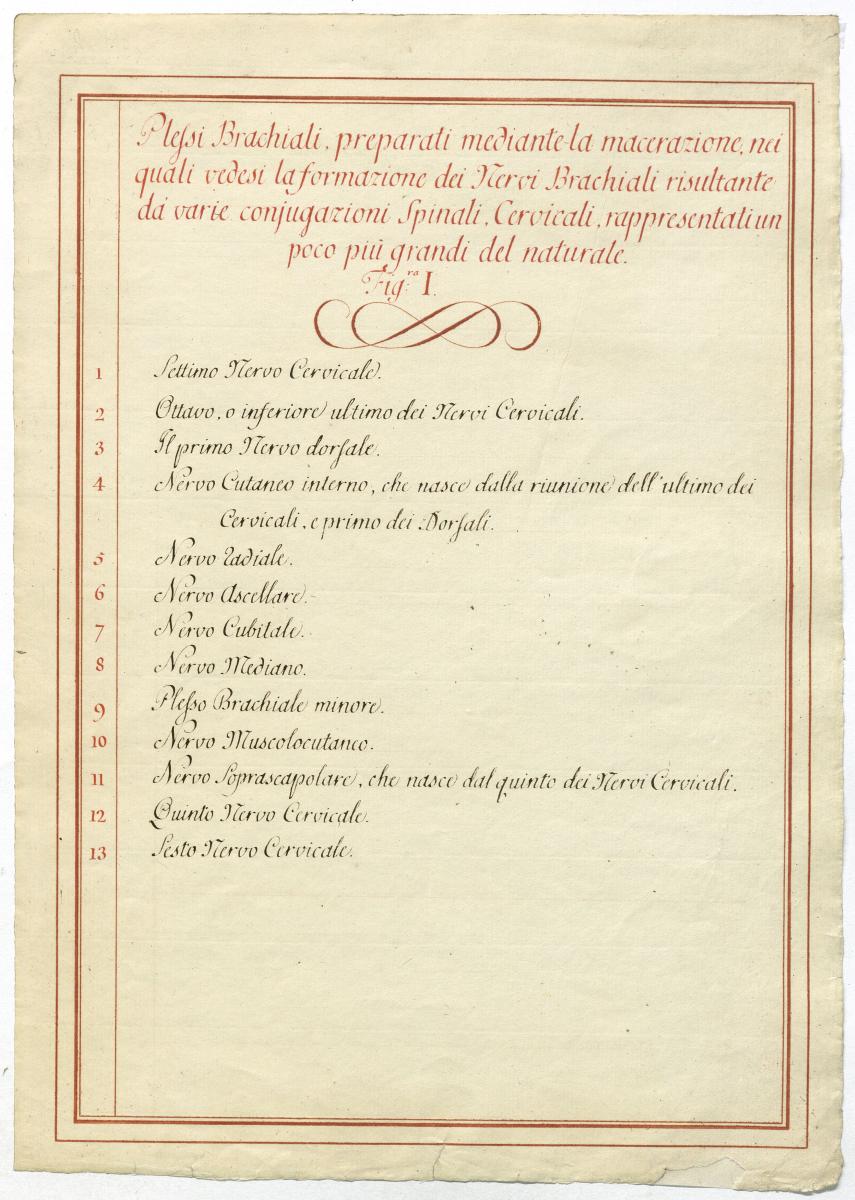 Plessi Brachiali, preparati mediante la macerazione, nei
quali vedesi la formazione dei Nervi Brachiali risultante
dá varie conjugazioni Spinali, Cervicali, rappresentati un
poco piú grandi del naturale.
Fig.ra I.
1 Settimo Nervo Cervicale.
2 Ottavo, o inferiore ultimo dei Nervi Cervicali.
3 Il primo Nervo dorsale.
4 Nervo Cutaneo interno, che nasce dalla riunione dell'ultimo dei
Cervicali, e primo dei Dorsali.
5 Nervo Radiale.
6 Nervo Ascellare.
7 Nervo Cubitale.
8 Nervo Mediano.
9 Plesso Brachiale minore.
10 Nervo Muscolocutaneo.
11 Nervo Soprascapolare, che nasce dal quinto dei Nervi Cervicali.
12 Quinto Nervo Cervicale.
13 Sesto Nervo Cervicale.